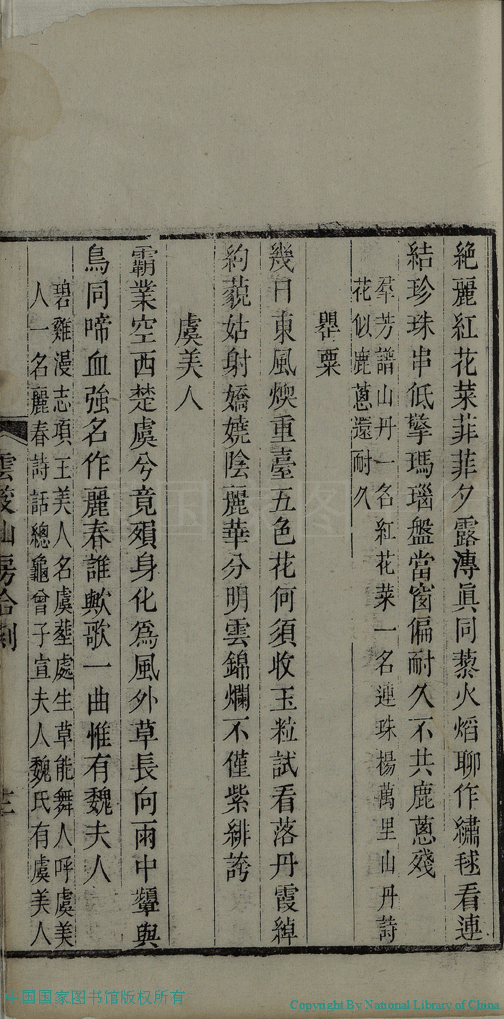 絶麗紅花菜菲菲夕露漙眞同蓺火熖聊作繡毬看連
結珍珠串低擎瑪瑙盤當窗偏耐久不共鹿蔥殘
羣芳譜山丹一名紅花菜一名連珠楊萬里山丹詩
花似鹿蔥還耐久
罌粟
幾日東風煖重臺五色花何須收玉粒試看落丹霞綽
約藐姑射嬌嬈陰麗華分明雲錦爛不僅紫緋誇
虞美人
霸業空西楚虞兮竟殞身化爲風外草長向雨中顰與
鳥同啼血強名作麗春誰歟歌一曲惟有魏夫人
碧雞漫志項王美人名虞葬處生草能舞人呼虞美
人一名麗春詩話總龜曾子宣夫人魏氏有虞美人
山房合刻
中国国家图书馆版权所有
Copyright By National Library of China